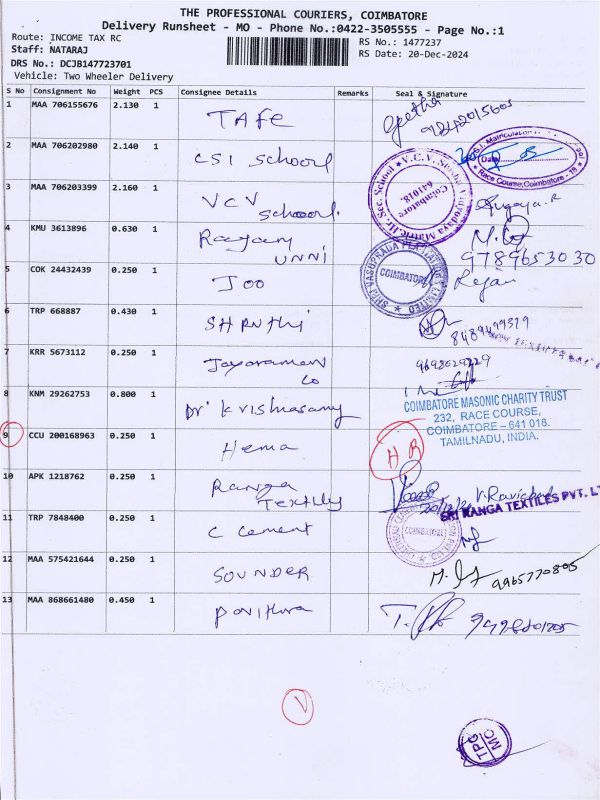 THE PROFESSIONAL COURIERS, COIMBATORE
Delivery Runsheet - MO - Phone No.:0422-3505555 - Page No.:1
Route: INCOME TAX RC
RS No.: 1477237
Staff: NATARAJ
RS Date: 20-Dec-2024
DRS No.: DCJB147723701
Vehicle: Two Wheeler Delivery
S No Consignment No Weight PCS Consignee Details Remarks Seal & Signature
1 MAA 706155676 2.130 1 TAFE Geetha
2 MAA 706202980 2.140 1 CSI School
3 MAA 706203399 2.160 1 VCV School.
4 KMU 3613896 0.630 1 UNNI
9789653030
5 COK 24432439 0.250 1 JOO
COIMBATORE
6 TRP 668887 0.430 1 SHRUTHI 8489499329
7 KRR 5673112 0.250 1 Jayaraman Co
8 KNM 29262753 0.800 1 Dr. Krishnasamy
COIMBATORE MASONIC CHARITY TRUST
232, RACE COURSE,
COIMBATORE - 641 018.
TAMILNADU, INDIA.
9 CCU 200168963 0.250 1 Hema HR
10 APK 1218762 0.250 1 Ranga Textiles
SRI RANGA TEXTILES PVT. L
11 TRP 7848400 0.250 1 C Cement
COIMBATORE
12 MAA 575421644 0.250 1 SOUNDER
9965770805
13 MAA 868661480 0.450 1 Pavithra
V
TPC
MO